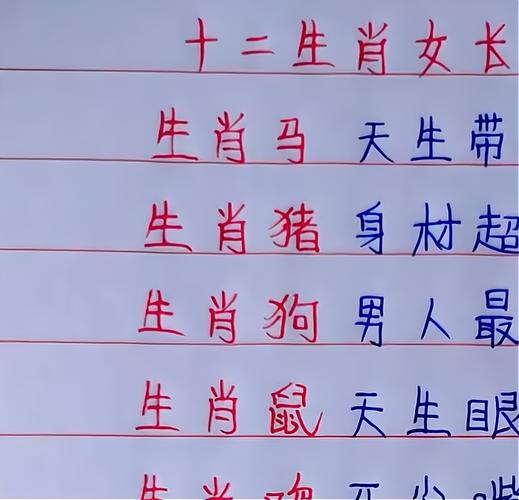 十二生肖女长
生肖马 天生带
生肖猪 身材超
生肖狗 男人最
生肖鼠 天生眼
生肖鸡